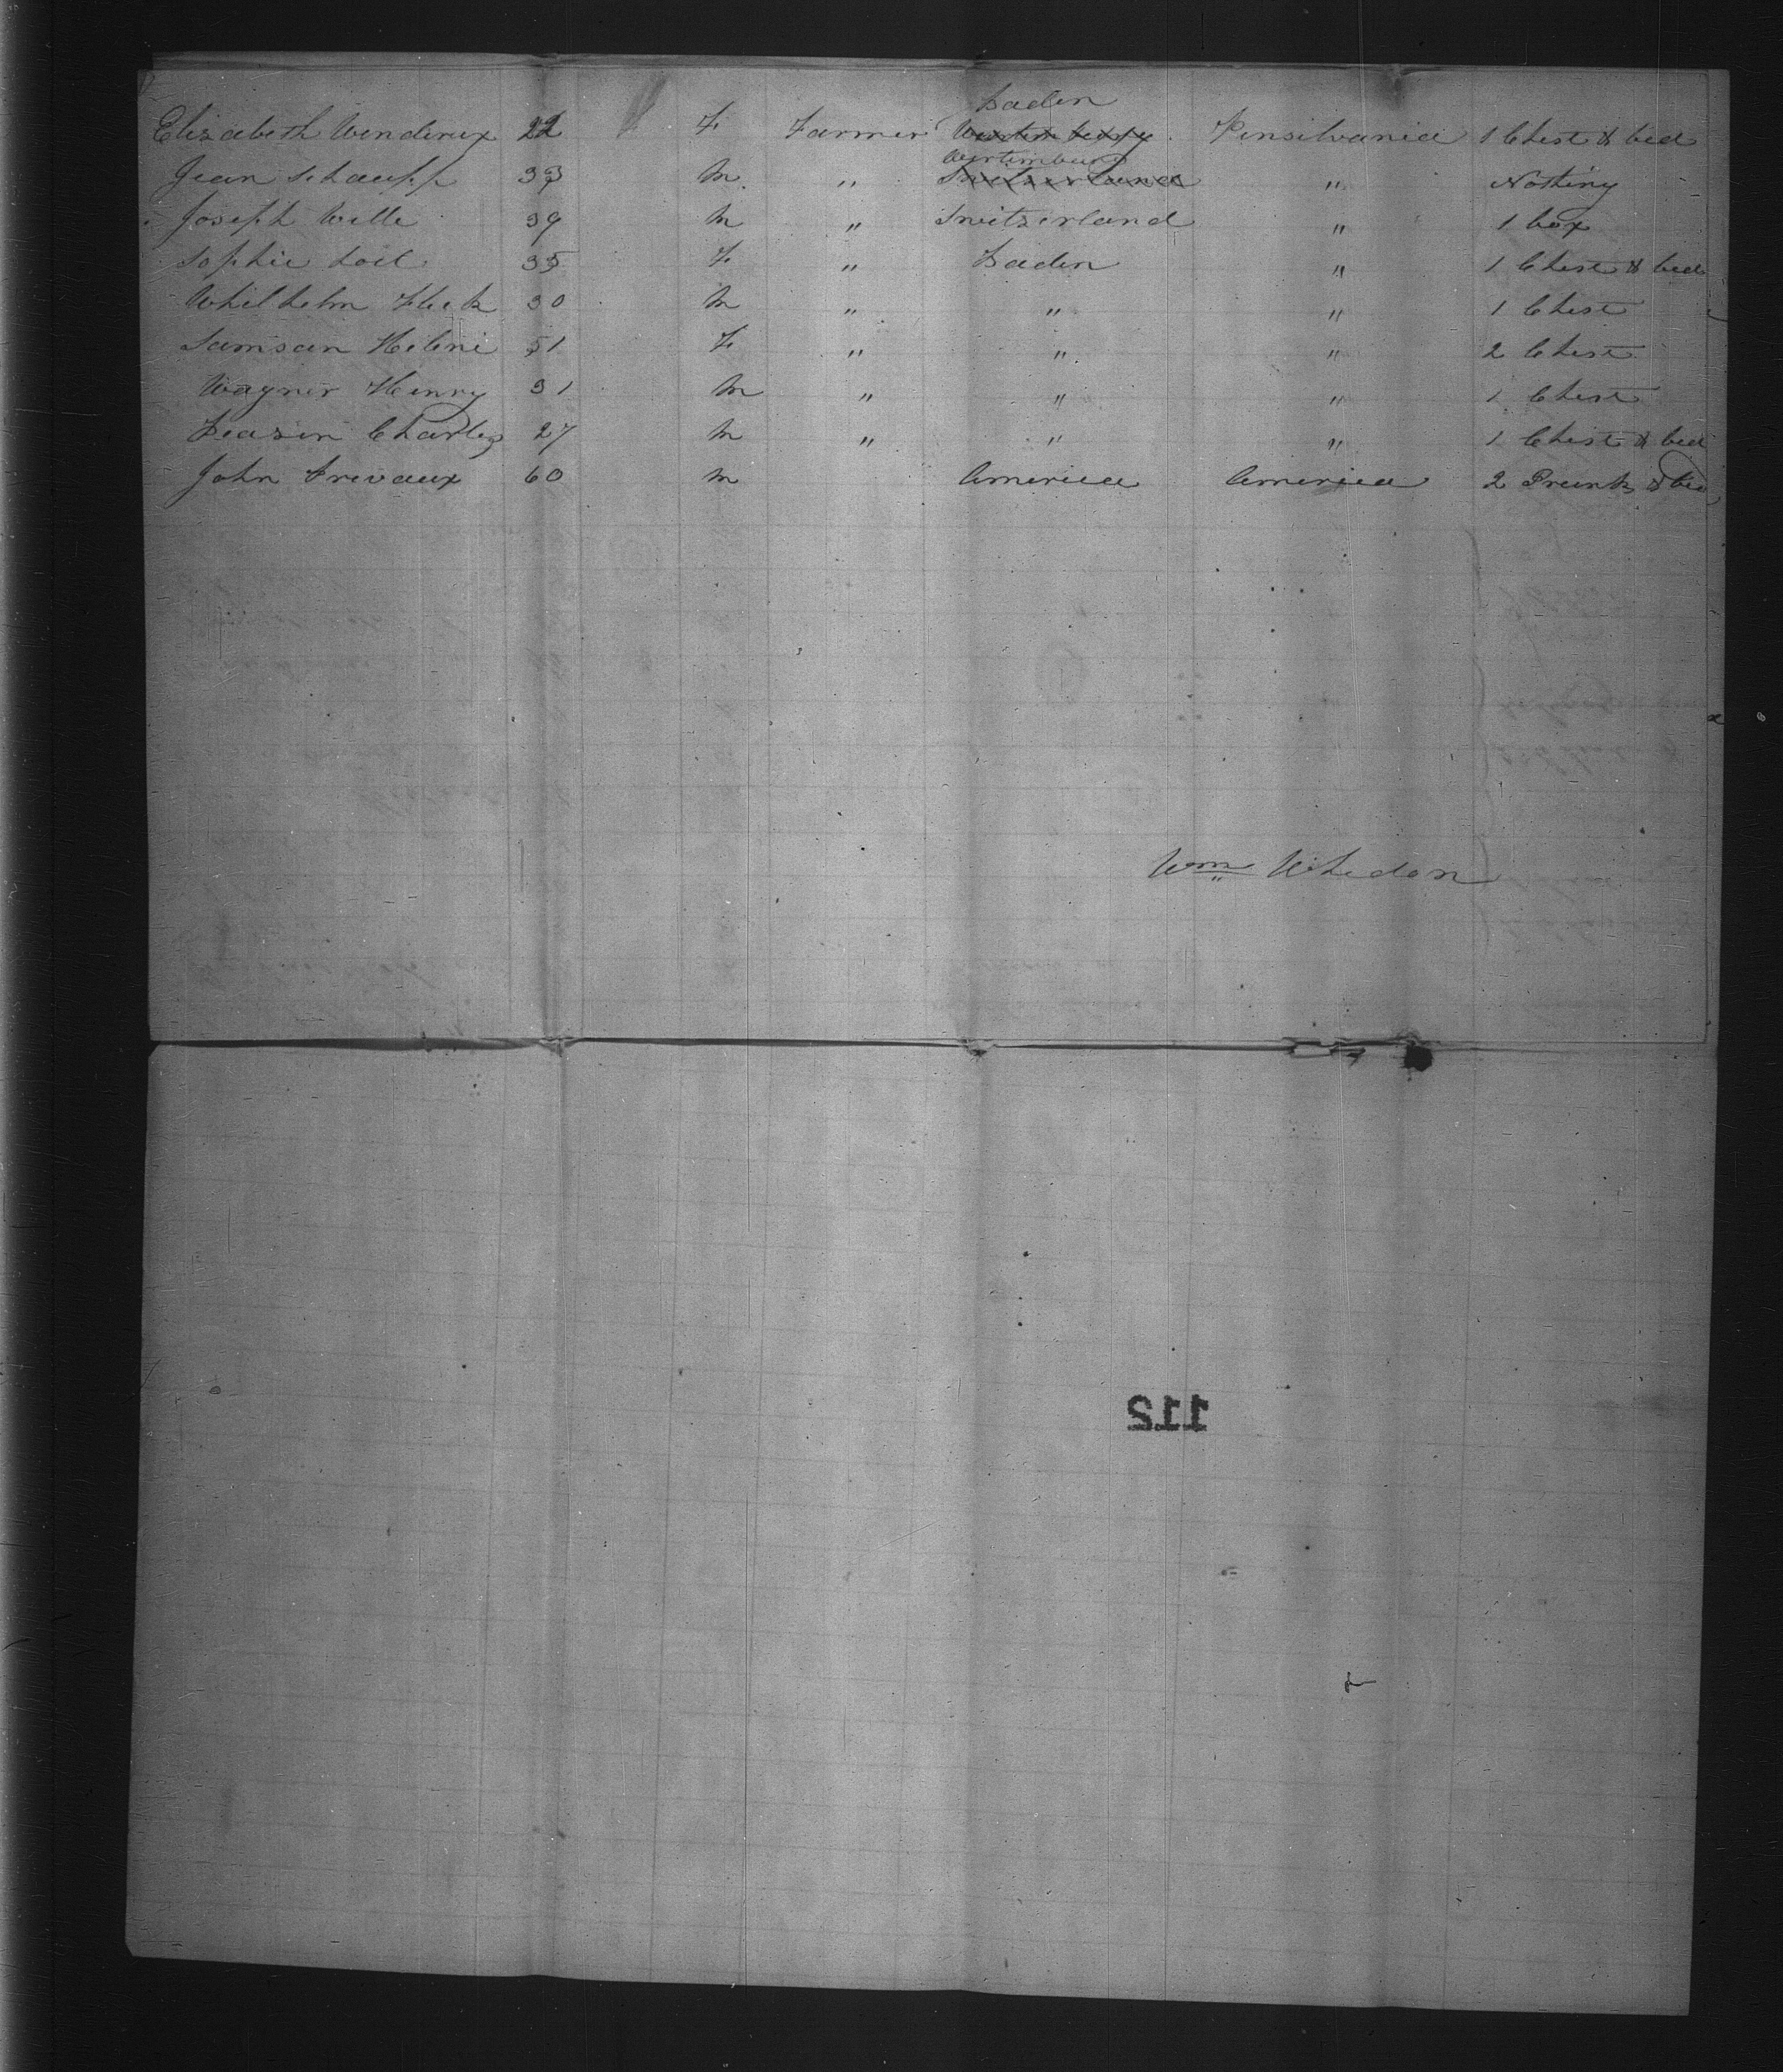 Baden
Elizabeth Wenderux 22 F Farmer Wurtemberg Pensilvania 1 Chest & bed
Wurtemburg
Jean Schaupp 33 M " Switzerland " Nothing
Joseph Wille 39 M " Switzerland " 1 box
Sophie 35 F " Baden " 1 Chest & bed
Whilhelm Fleck 30 M " " " 1 Chest
Samson Helene 51 F " " " 2 Chest
Wagner Henry 31 M " " " 1 Chest
Charles 27 M " " " 1 Chest & bed
John Prevaux 60 M America America 2 Trunks & bed
Wm Whedon
112